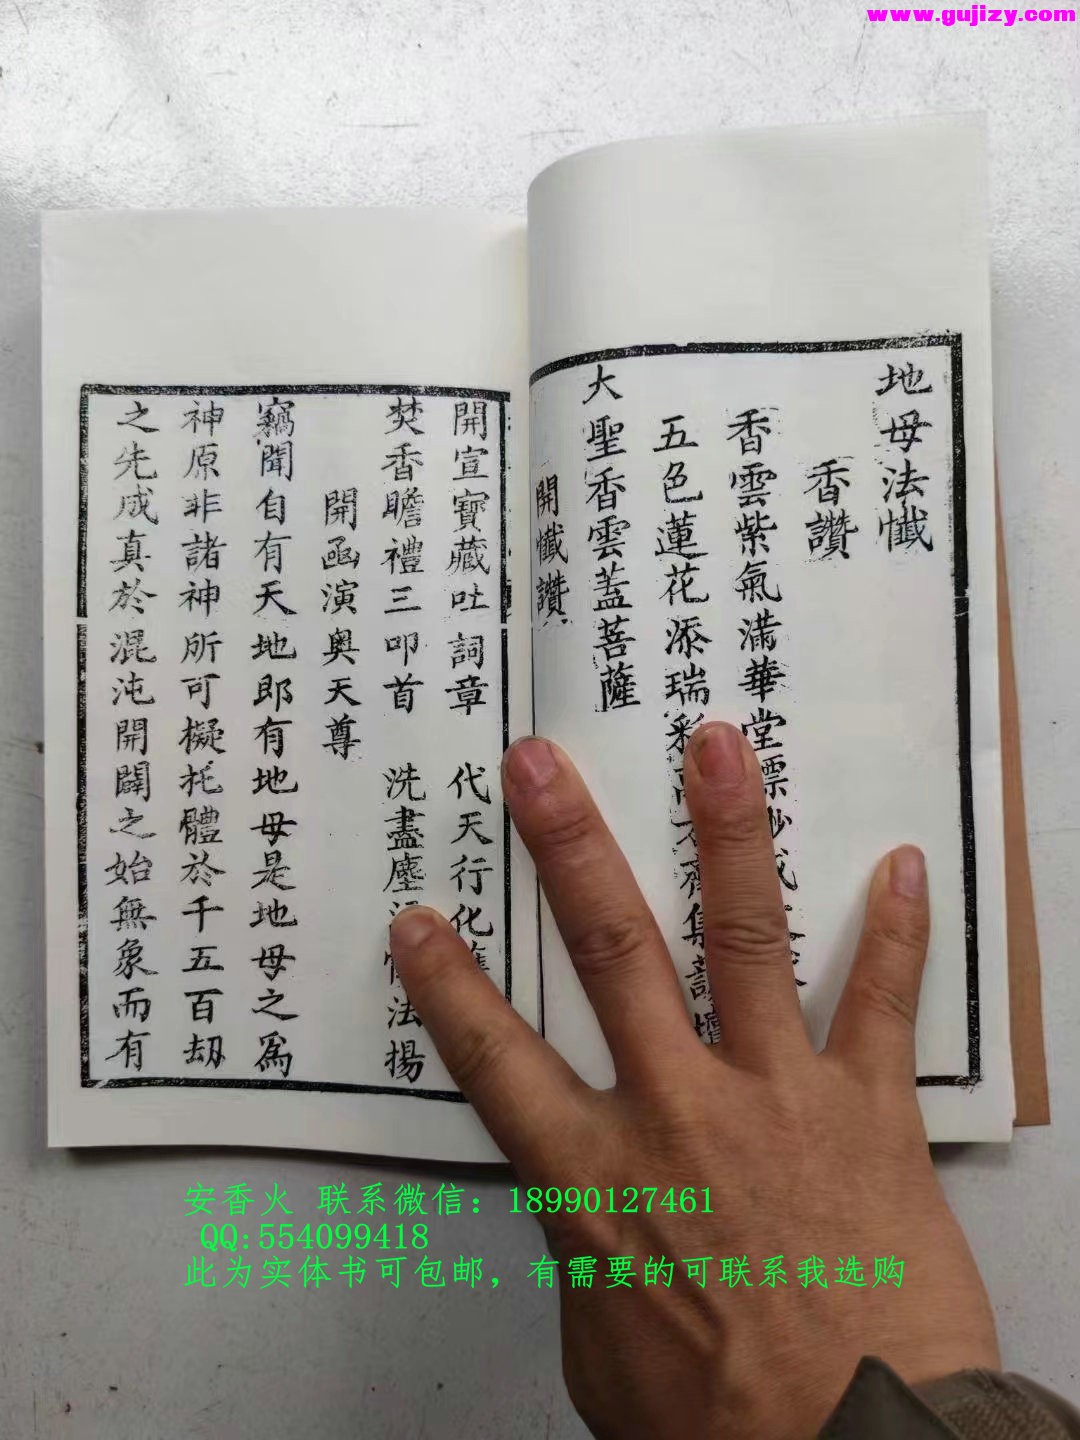 www.gujizy.com
地母法懺
香讚
香雲紫氣滿華堂
五色蓮花添瑞彩
齊集
大聖香雲蓋菩薩
開懺讚
開宣寶藏吐詞章　代天行化
焚香瞻禮三叩首　洗盡塵
法揚
開函演奥天尊
竊聞自有天地郎有地母是地母之爲
神原非諸神所可擬托體於千五百劫
之先成真於混沌開闢之始無象而有
安香火 联系微信：18990127461
QQ:554099418
此为实体书可包邮，有需要的可联系我选购